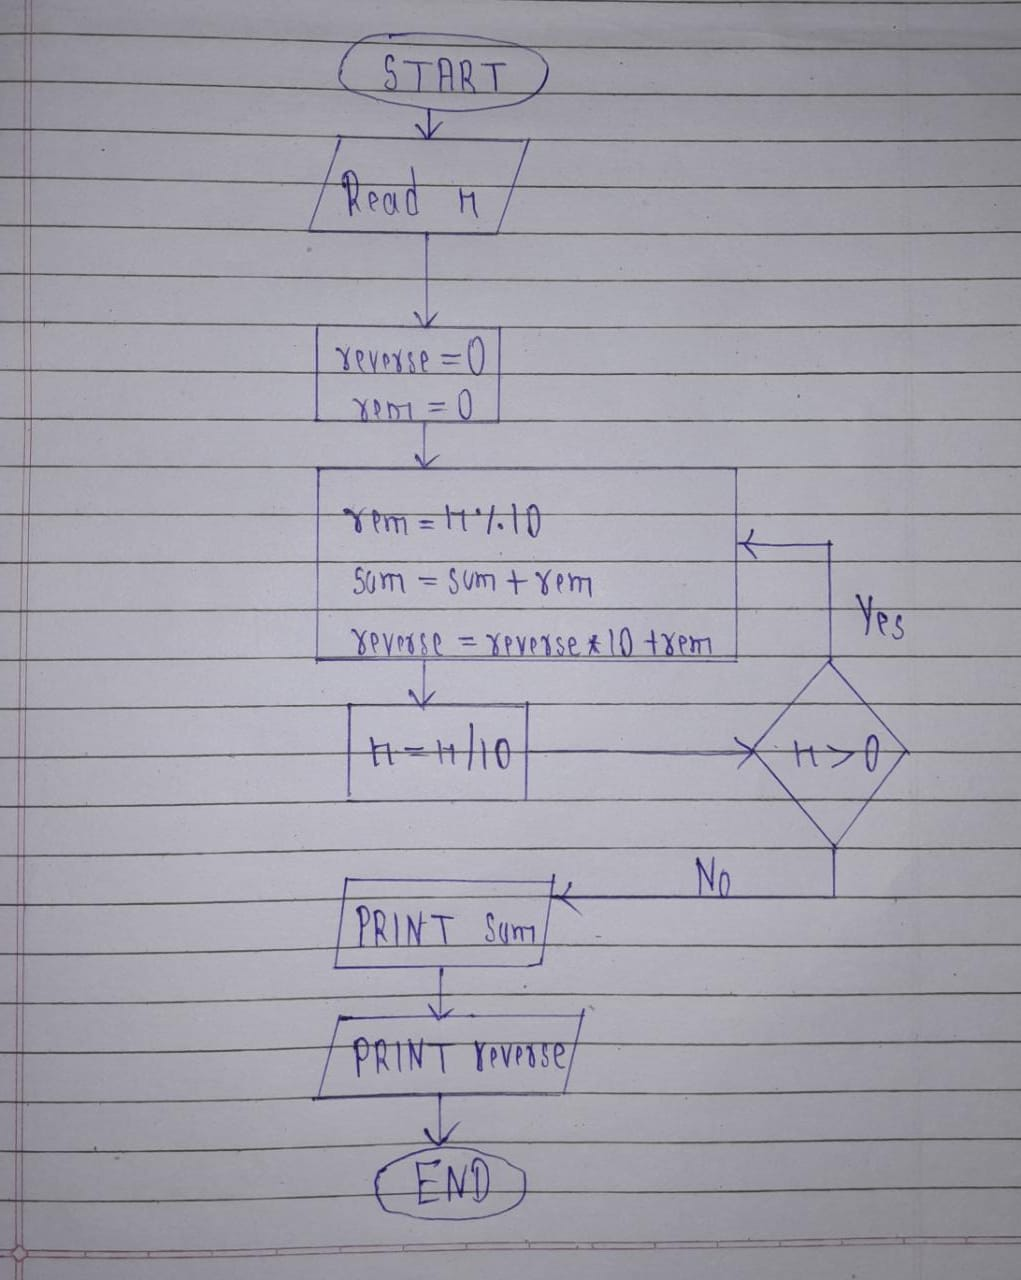 START
Read n
reverse = 0
rem = 0
rem = n % 10
sum = sum + rem
reverse = reverse * 10 + rem
Yes
n = n/10
n > 0
No
PRINT sum
PRINT reverse
END